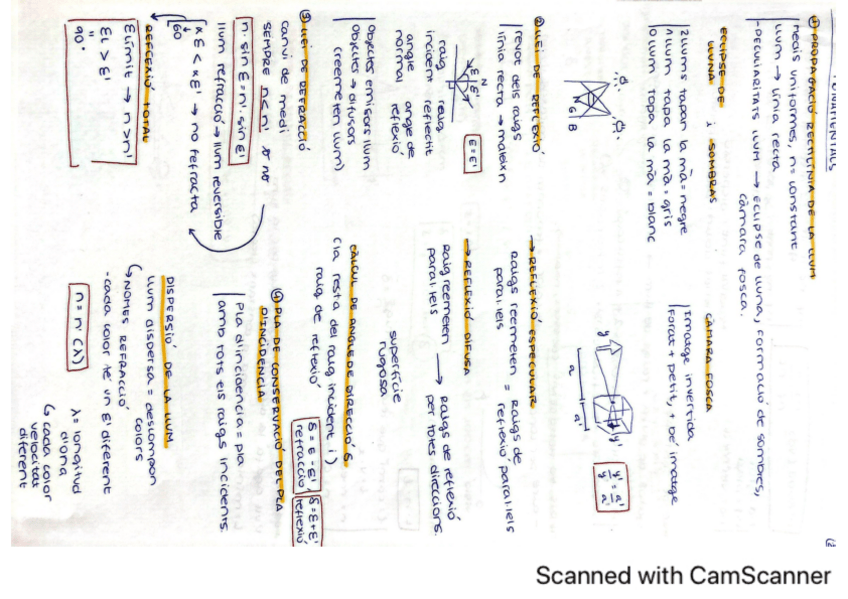 FONAMENTALS
① PROPAGACIÓ RECTILÍNIA DE LA LLUM
Medis uniformes, n = constant
llum → línia recta
- PECULIARITATS LLUM → eclipse de lluna, formació de sombres,
càmara fosca.
ECLIPSE DE LLUNA i SOMBRAS
2 llums tapan la mà = negre
1 llum tapa la mà = gris
0 llum tapa la mà = blanc
N G B
CÀMARA FOSCA
Imatge invertida
Forat + petit, + bé imatge
y y'
a a'
y'/y = a'/a
② LLEI DE REFLEXIÓ
revot dels raigs
línia recta → mateix n
N
E E'
E = E'
raig incident
raig reflectit
angle normal
angle de reflexió
Objectes emisors llum
Objectes → difusors
(reemeten llum)
→ REFLEXIÓ ESPECULAR
Raigs reemeten paral·lels = Raigs de reflexió paral·lels
→ REFLEXIÓ DIFUSA
Raig reemeten paral·lels → Raigs de reflexió per totes direccions.
superfície rugosa
CÀLCUL DE ANGLE DE DIRECCIÓ δ.
(la resta del raig incident i)
raig de reflexió
δ = E - E' refracció
δ = E + E' reflexió
③ LLEI DE REFRACCIÓ
canvi de medi
SEMPRE n < n' o no
n · sin E = n' · sin E'
llum refracció → llum reversible
x E < x E' → no refracta
60
REFLEXIÓ TOTAL
E límit → n > n'
EL > E'
90°
④ PLA DE CONSERVACIÓ DEL PLA D'INCIDÈNCIA
pla d'incidència = pla
amb tots els raigs incidents.
DISPERSIÓ DE LA LLUM
llum dispersa = descompon colors
↳ NOMÉS REFRACCIÓ
- cada color té un E' diferent
n = n' (λ)
λ = longitud d'ona
↳ cada color velocitat diferent
Scanned with CamScanner